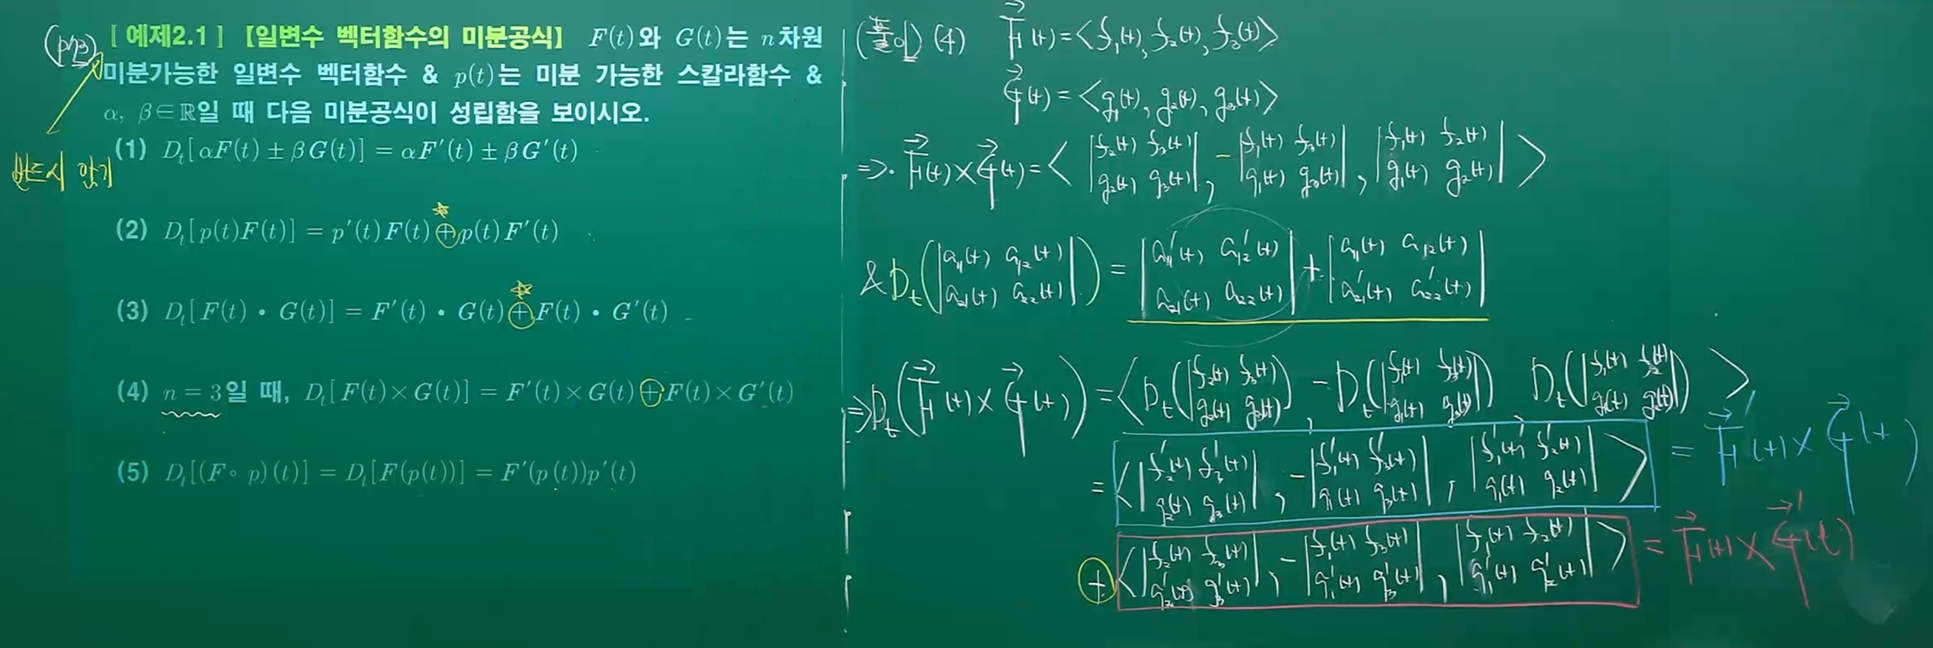 (p73) [예제2.1] 【일변수 벡터함수의 미분공식】 F(t)와 G(t)는 n차원
미분가능한 일변수 벡터함수 & p(t)는 미분 가능한 스칼라함수 &
α, β∈ℝ일 때 다음 미분공식이 성립함을 보이시오.
반드시 암기
(1) D_t[αF(t) ± βG(t)] = αF′(t) ± βG′(t)
(2) D_t[p(t)F(t)] = p′(t)F(t) ⊕ p(t)F′(t)
(3) D_t[F(t) • G(t)] = F′(t) • G(t) ⊕ F(t) • G′(t)
(4) n = 3일 때, D_t[F(t)×G(t)] = F′(t)×G(t) ⊕ F(t)×G′(t)
(5) D_t[(F∘p)(t)] = D_t[F(p(t))] = F′(p(t))p′(t)
(풀이) (4) F⃗(t) = <f₁(t), f₂(t), f₃(t)>
G⃗(t) = <g₁(t), g₂(t), g₃(t)>
⇒ F⃗(t)×G⃗(t) = < |f₂(t) f₃(t); g₂(t) g₃(t)|, -|f₁(t) f₃(t); g₁(t) g₃(t)|, |f₁(t) f₂(t); g₁(t) g₂(t)| >
& D_t(|a₁₁(t) a₁₂(t); a₂₁(t) a₂₂(t)|) = |a₁₁′(t) a₁₂′(t); a₂₁(t) a₂₂(t)| + |a₁₁(t) a₁₂(t); a₂₁′(t) a₂₂′(t)|
⇒ D_t(F⃗(t)×G⃗(t)) = < D_t(|f₂(t) f₃(t); g₂(t) g₃(t)|), -D_t(|f₁(t) f₃(t); g₁(t) g₃(t)|) D_t(|f₁(t) f₂(t); g₁(t) g₂(t)|) >
= < |f₂′(t) f₃′(t); g₂(t) g₃(t)|, -|f₁′(t) f₃′(t); g₁(t) g₃(t)|, |f₁′(t) f₂′(t); g₁(t) g₂(t)| > = F⃗′(t)×G⃗(t
⊕ < |f₂(t) f₃(t); g₂′(t) g₃′(t)|, -|f₁(t) f₃(t); g₁′(t) g₃′(t)|, |f₁(t) f₂(t); g₁′(t) g₂′(t)| > = F⃗(t)×G⃗′(t)